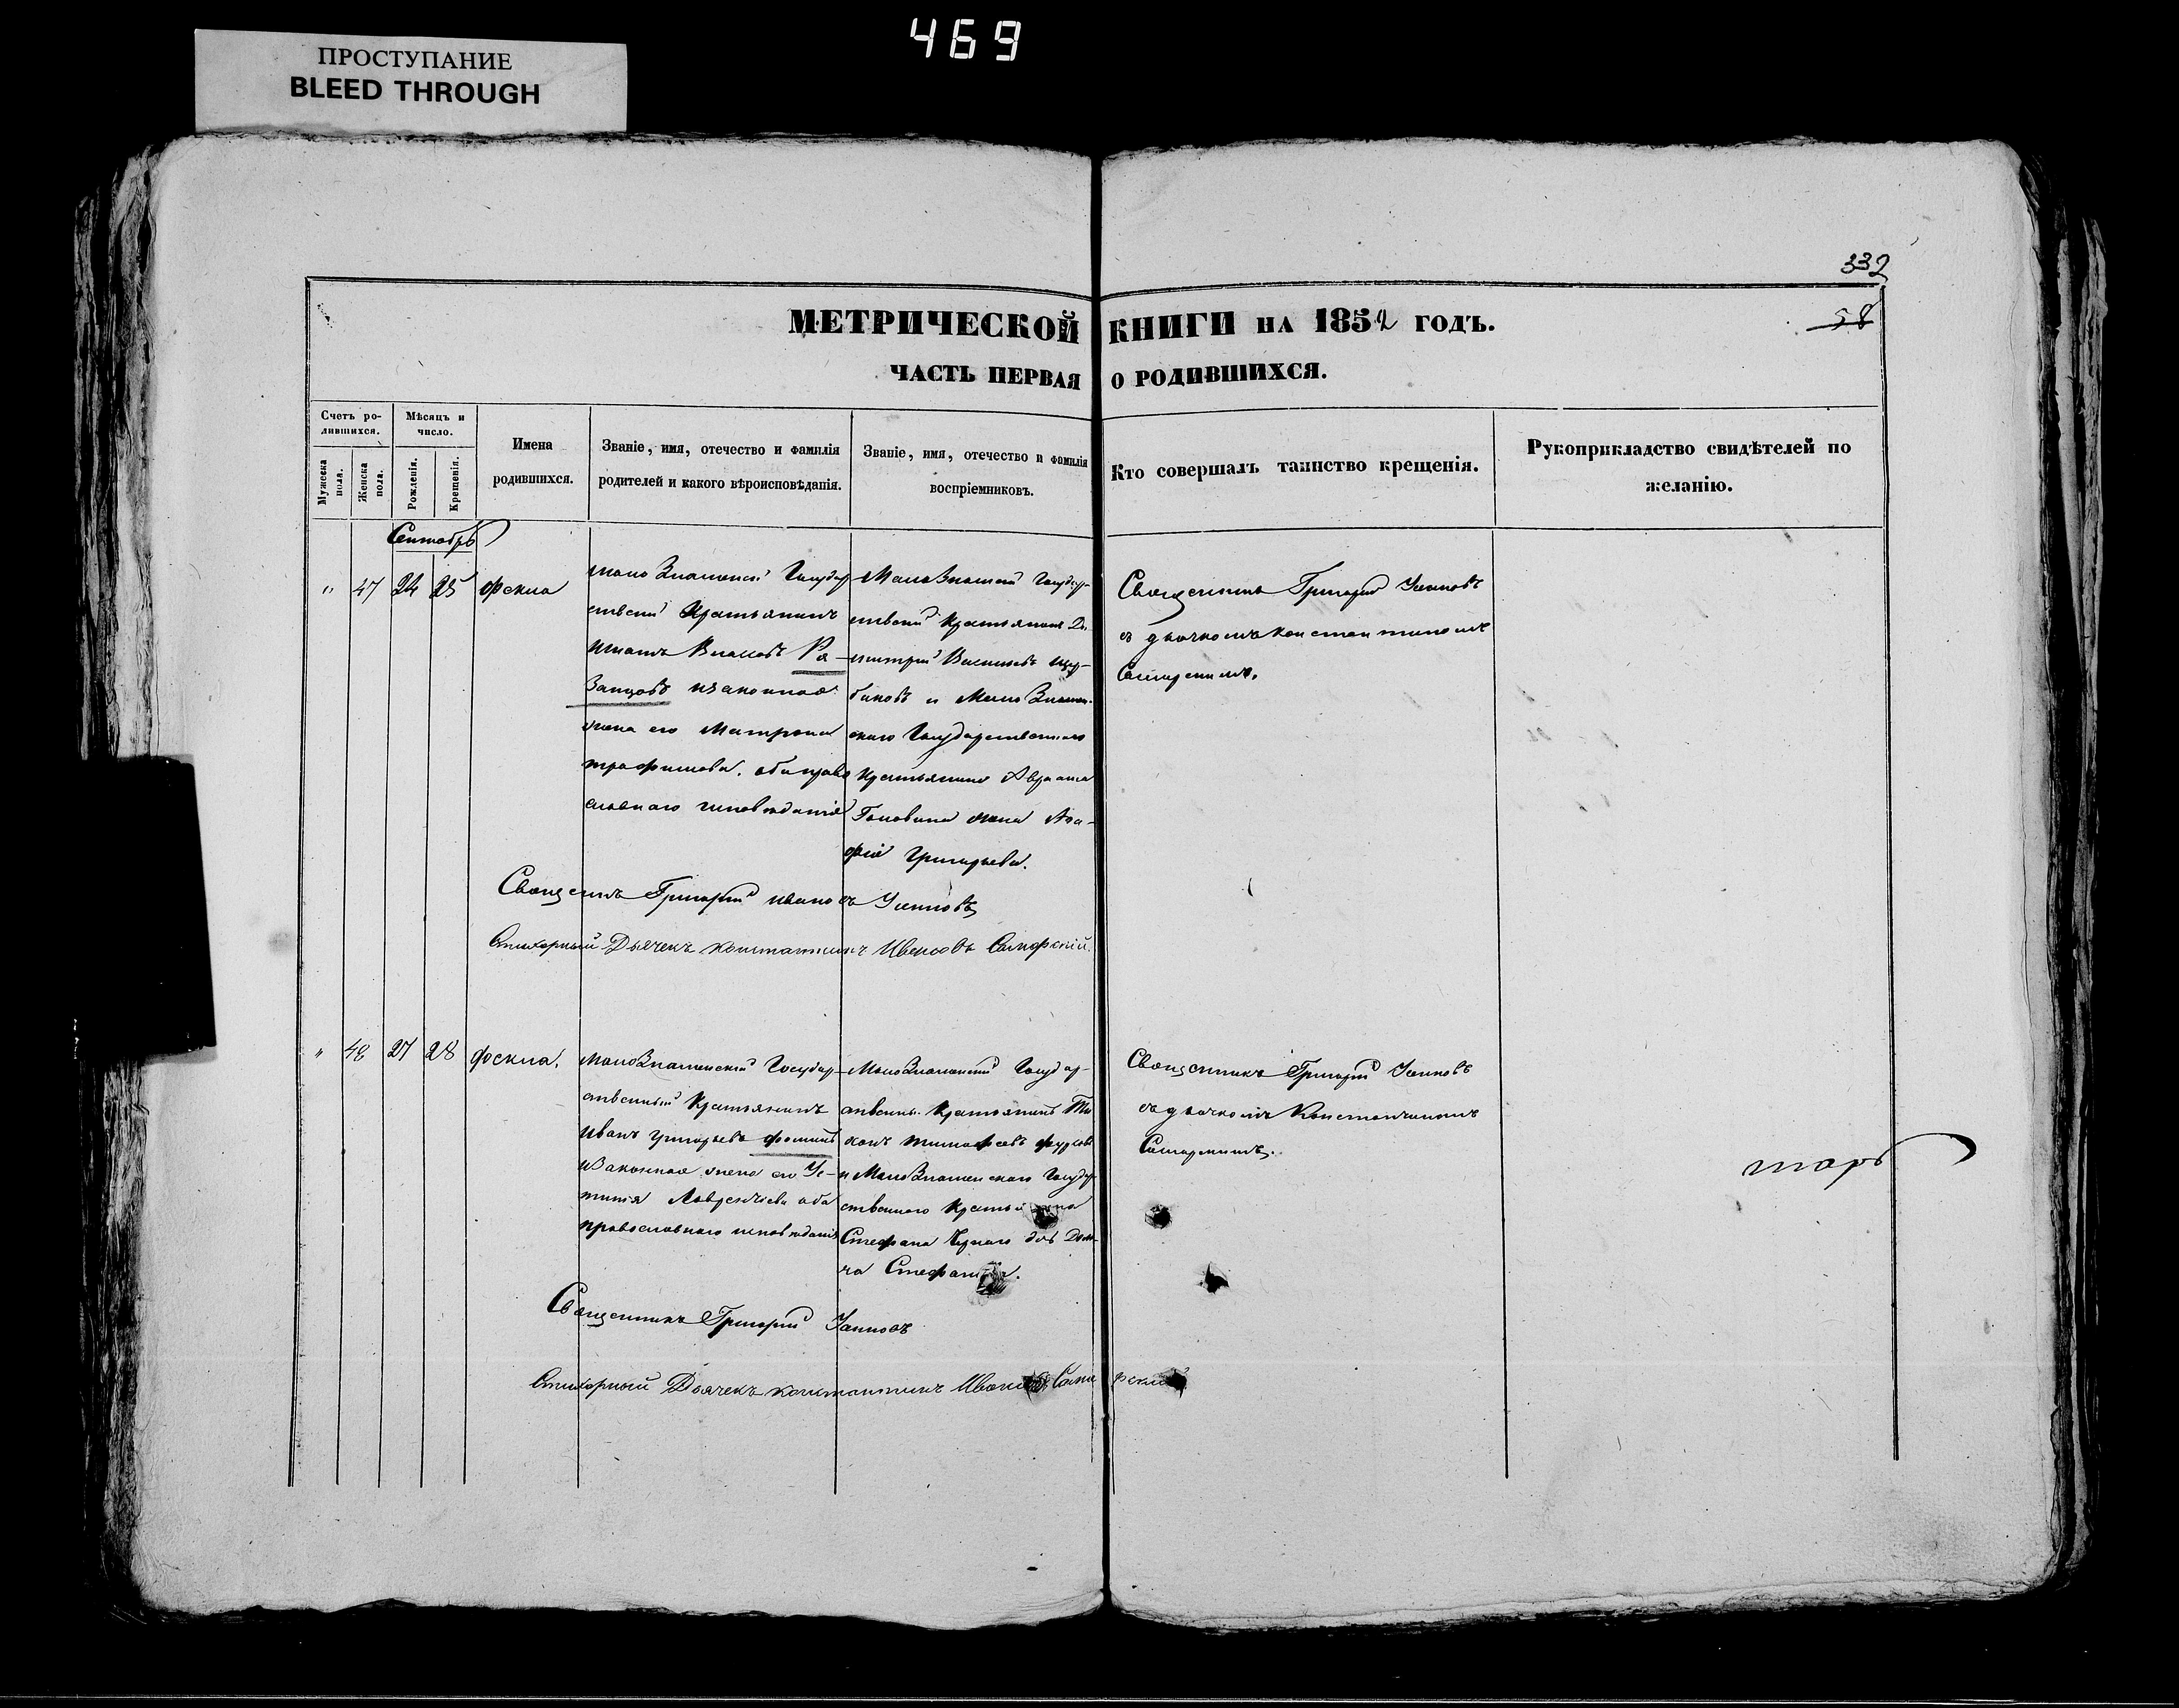 469
ПРОСТУПАНИЕ
BLEED THROUGH
332
58
МЕТРИЧЕСКОЙ КНИГИ НА 1852 ГОДЪ.
ЧАСТЬ ПЕРВАЯ О РОДИВШИХСЯ.
Счетъ ро-
дившихся.
Мужеска
пола.
Женска
пола.
Мѣсяцъ и
число.
Рожденія.
Крещенія.
Имена
родившихся.
Званіе, имя, отечество и фамилія
родителей и какого вѣроисповѣданія.
Званіе, имя, отечество и фамилія
воспріемниковъ.
Кто совершалъ таинство крещенія.
Рукоприкладство свидѣтелей по
желанію.
Сентябрь
" 47 24 25 Фекла
мало Знаменскій Государ
ственый Крестьянинъ
Власовъ Ря-
занцовъ изаконная
жена его Матрона
трофимова. оба право
славнаго исповеданія
Мало Знаменскій Государ-
ственый Крестьянинъ Ди-
митрій Васильевъ
и Мало Знамен-
скаго Государственнаго
Крестьянина Авраама
Головина жена Ага-
фія Григорьева.
Священникъ Григорій
съ дьячкомъ Константиномъ
Священникъ Григорій Иванов
Стихарный Дьячекъ Константинъ Ивановъ
" 48 27 28 Фекла.
МалоЗнаменский Государ-
ственный Крестьянинъ
Иванъ Григорьевъ Фоминъ
изаконная жена его Ус-
тинія Лаврентіева оба
православнаго исповеданія
МалоЗнаменский Государ-
ственны. Крестьянинъ Ти
хонъ Тимофеевъ
и МалоЗнаменскаго Государ
ственнаго Крестьянина
Стефана дочь Дом-
на Стефанова.
Священникъ Григорій
съ дьячкомъ Константиномъ
Священникъ Григорій
Стихарный Дьячекъ Константинъ Ивановъ
тарь